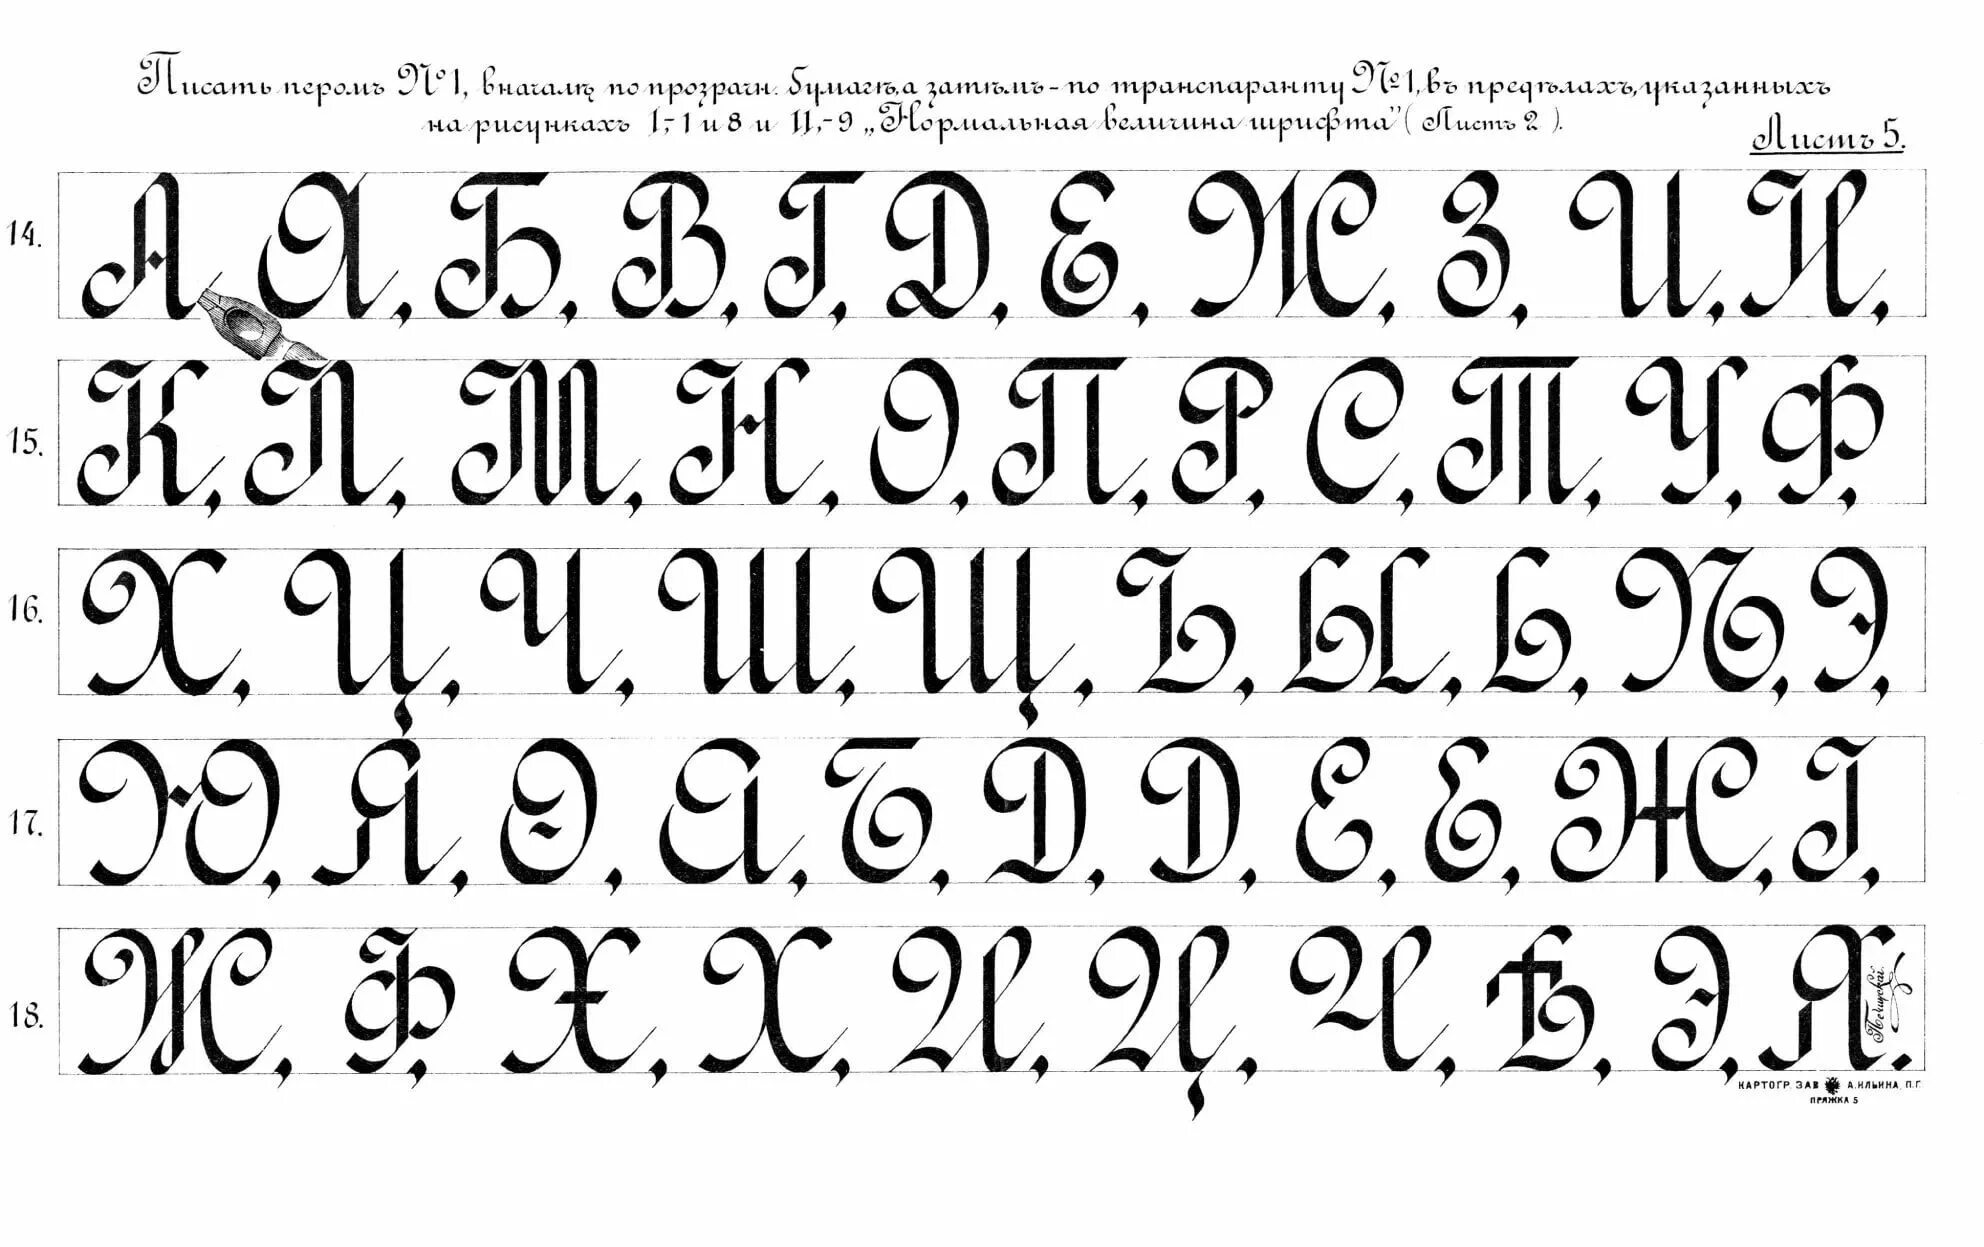 Писать перомъ №1, вначалѣ по прозрачн. бумагѣ, а затѣмъ - по транспаранту №1, въ предѣлахъ, указанныхъ
на рисункахъ 1,-1 и 8 и 11,-9 „Нормальная величина шрифта" (Листъ 2).
Листъ 5.
14. А А, Б, В, Г, Д, Е, Ж, З, И, Й,
15. К, Л, М, Н, О, П, Р, С, Т, У, Ф,
16. Х, Ц, Ч, Ш, Щ, Ъ, Ы, Ь, Ѣ, Э,
17. Ю, Я, Ѳ, А, Б, Д, Д, Е, Е, Ж, І,
18. Ж, Ф, Х, Х, И, Ц, Ч, Ѣ, Э, Я.
КАРТОГР. ЗАВ А. ИЛЬИНА, П.Г.
ПРЯЖКА 5